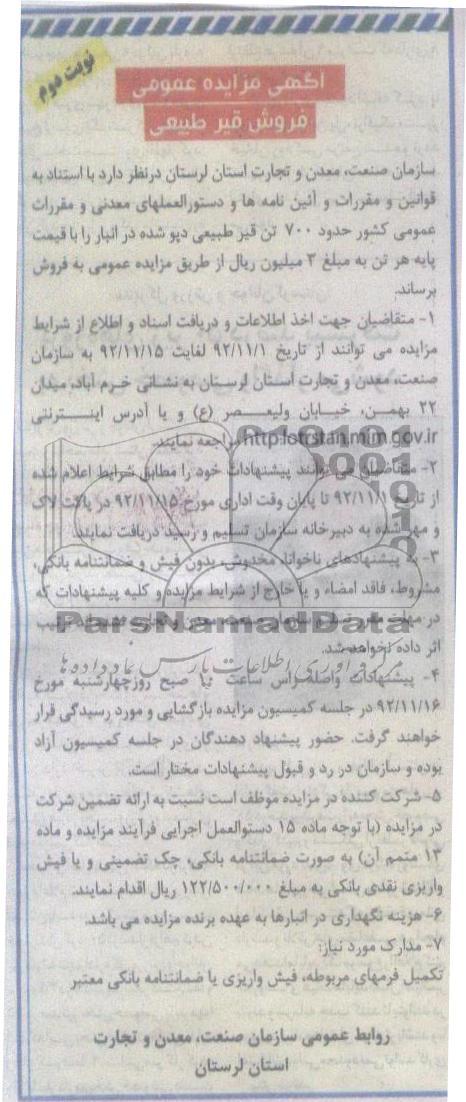 نوبت دوم
آگهی مزایده عمومی
فروش قیر طبیعی
سازمان صنعت، معدن و تجارت استان لرستان درنظر دارد با استناد به
قوانین و مقررات و آئین نامه ها و دستورالعملهای معدنی و مقررات
عمومی کشور حدود ۷۰۰ تن قیر طبیعی دپو شده در انبار را با قیمت
پایه هر تن به مبلغ ۳ میلیون ریال از طریق مزایده عمومی به فروش
برساند.
۱- متقاضیان جهت اخذ اطلاعات و دریافت اسناد و اطلاع از شرایط
مزایده می توانند از تاریخ ۹۲/۱۱/۱ لغایت ۹۲/۱۱/۱۵ به سازمان
صنعت، معدن و تجارت استان لرستان به نشانی خرم آباد، میدان
۲۲ بهمن، خیابان ولیعصر (ع) و یا آدرس اینترنتی
http:lotrstan.mim.gov.ir مراجعه نمایند.
۲- متقاضیان می توانند پیشنهادات خود را مطابق شرایط اعلام شده
از تاریخ ۹۲/۱۱/۱ تا پایان وقت اداری مورخ ۹۲/۱۱/۱۵ در پاکت لاک
و مهر شده به دبیرخانه سازمان تسلیم و رسید دریافت نمایند.
۳- به پیشنهادهای ناخوانا، مخدوش، بدون فیش و ضمانتنامه بانکی،
مشروط، فاقد امضاء و یا خارج از شرایط مزایده و کلیه پیشنهادات که
در مهلت مقرر
ParsNamadData
اثر داده نخواهد شد.
مرکز فرآوری اطلاعات پارس نماد داده ها
۴- پیشنهادات واصله راس ساعت ۱۰ صبح روز چهارشنبه مورخ
۹۲/۱۱/۱۶ در جلسه کمیسیون مزایده بازگشایی و مورد رسیدگی قرار
خواهند گرفت. حضور پیشنهاد دهندگان در جلسه کمیسیون آزاد
بوده و سازمان در رد و قبول پیشنهادات مختار است.
۵- شرکت کننده در مزایده موظف است نسبت به ارائه تضمین شرکت
در مزایده (با توجه ماده ۱۵ دستوالعمل اجرایی فرآیند مزایده و ماده
۱۳ متمم آن) به صورت ضمانتنامه بانکی، چک تضمینی و یا فیش
واریزی نقدی بانکی به مبلغ ۱۲۲/۵۰۰/۰۰۰ ریال اقدام نمایند.
۶- هزینه نگهداری در انبارها به عهده برنده مزایده می باشد.
۷- مدارک مورد نیاز:
تکمیل فرمهای مربوطه، فیش واریزی یا ضمانتنامه بانکی معتبر
روابط عمومی سازمان صنعت، معدن و تجارت
استان لرستان